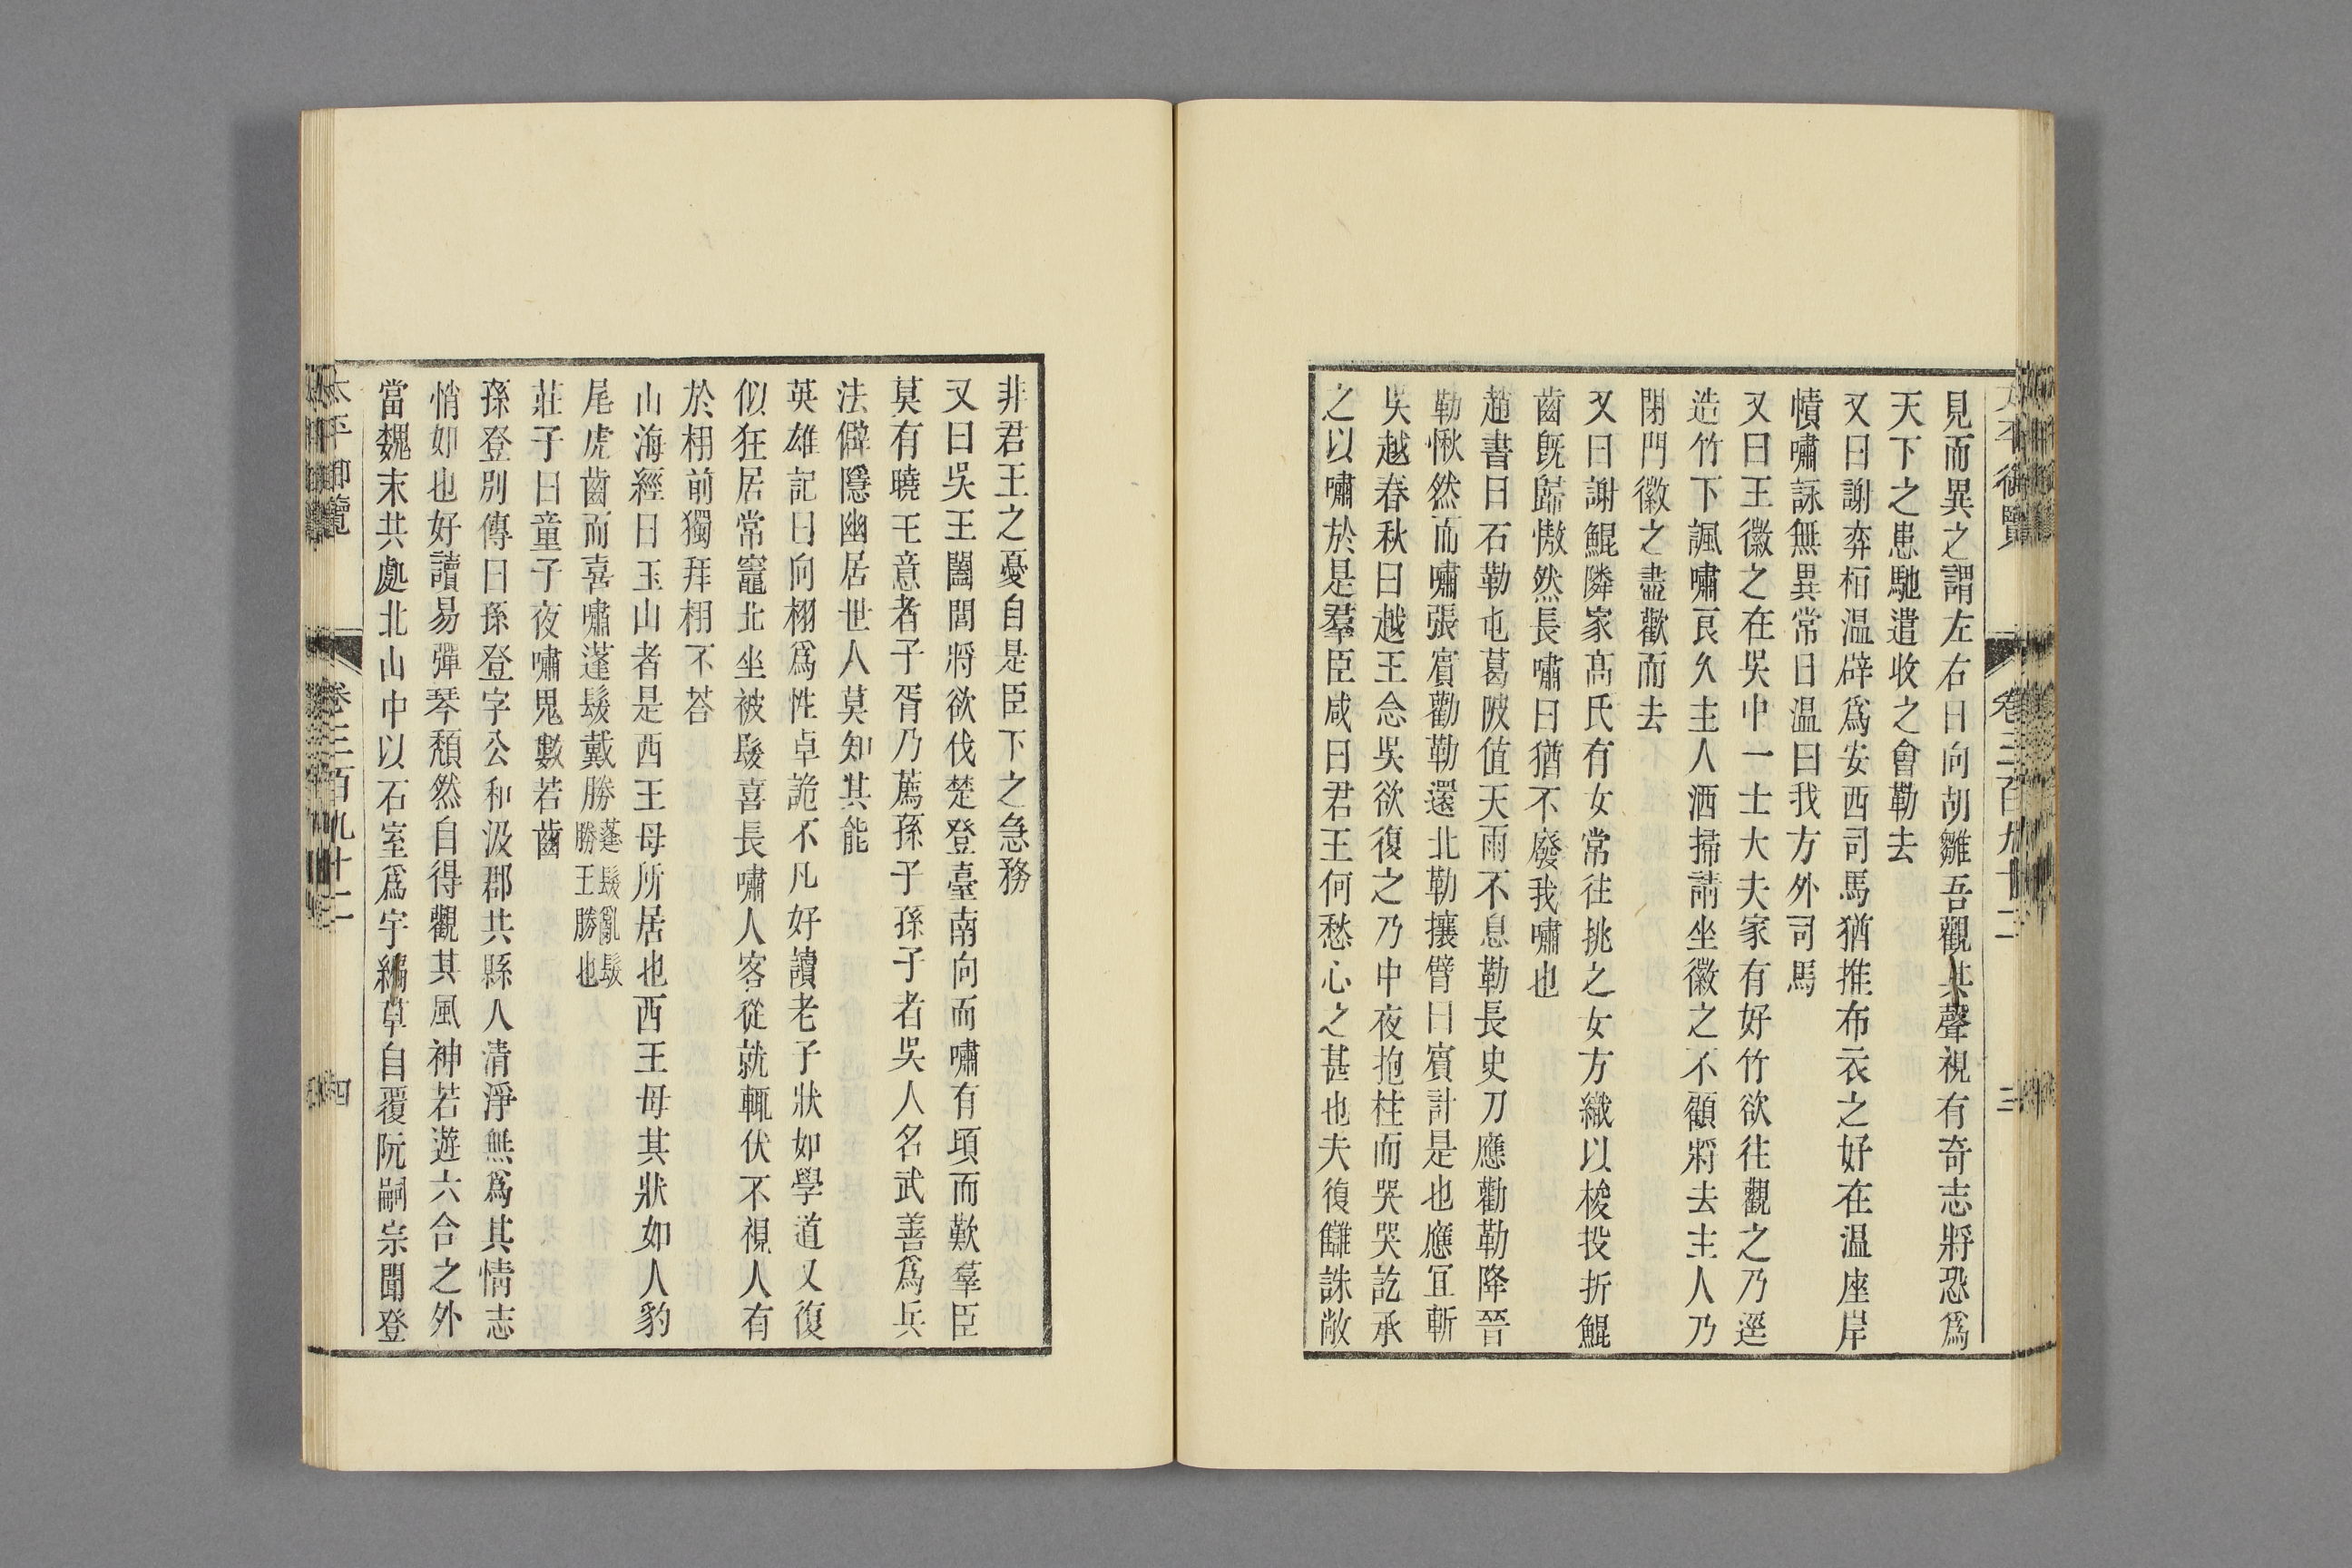 太平御覽 卷三百九十二 三
見而異之謂左右曰向胡雛吾觀其聲視有奇志將恐爲
天下之患馳遣收之會勒去
又曰謝奕桓温辟爲安西司馬猶推布衣之好在温座岸
幘嘯詠無異常日温曰我方外司馬
又曰王徽之在吳中一士大夫家有好竹欲往觀之乃逕
造竹下諷嘯良久主人洒掃請坐徽之不顧將去主人乃
閉門徽之盡歡而去
又曰謝鯤隣家高氏有女常往挑之女方織以梭投折鯤
齒旣歸傲然長嘯曰猶不廢我嘯也
趙書曰石勒屯葛陂值天雨不息勒長史刀應勸勒降晉
勒愀然而嘯張賓勸勒還北勒攘臂曰賓計是也應宜斬
吳越春秋曰越王念吳欲復之乃中夜抱柱而哭哭訖承
之以嘯於是羣臣咸曰君王何愁心之甚也夫復讎誅敵
非君王之憂自是臣下之急務
又曰吳王闔閭將欲伐楚登臺南向而嘯有頃而歎羣臣
莫有曉王意者子胥乃薦孫子孫子者吳人名武善爲兵
法僻隱幽居世人莫知其能
英雄記曰向栩爲性卓詭不凡好讀老子狀如學道又復
似狂居常竈北坐被髮喜長嘯人客從就輒伏不視人有
於栩前獨拜栩不荅
山海經曰玉山者是西王母所居也西王母其狀如人豹
尾虎齒而喜嘯蓬髮戴勝蓬髮亂髮勝王勝也
莊子曰童子夜嘯鬼數若齒
孫登別傳曰孫登字公和汲郡共縣人清淨無爲其情志
悄如也好讀易彈琴頹然自得觀其風神若遊六合之外
當魏末共處北山中以石室爲宇編草自覆阮嗣宗聞登
太平御覽 卷三百九十二 四